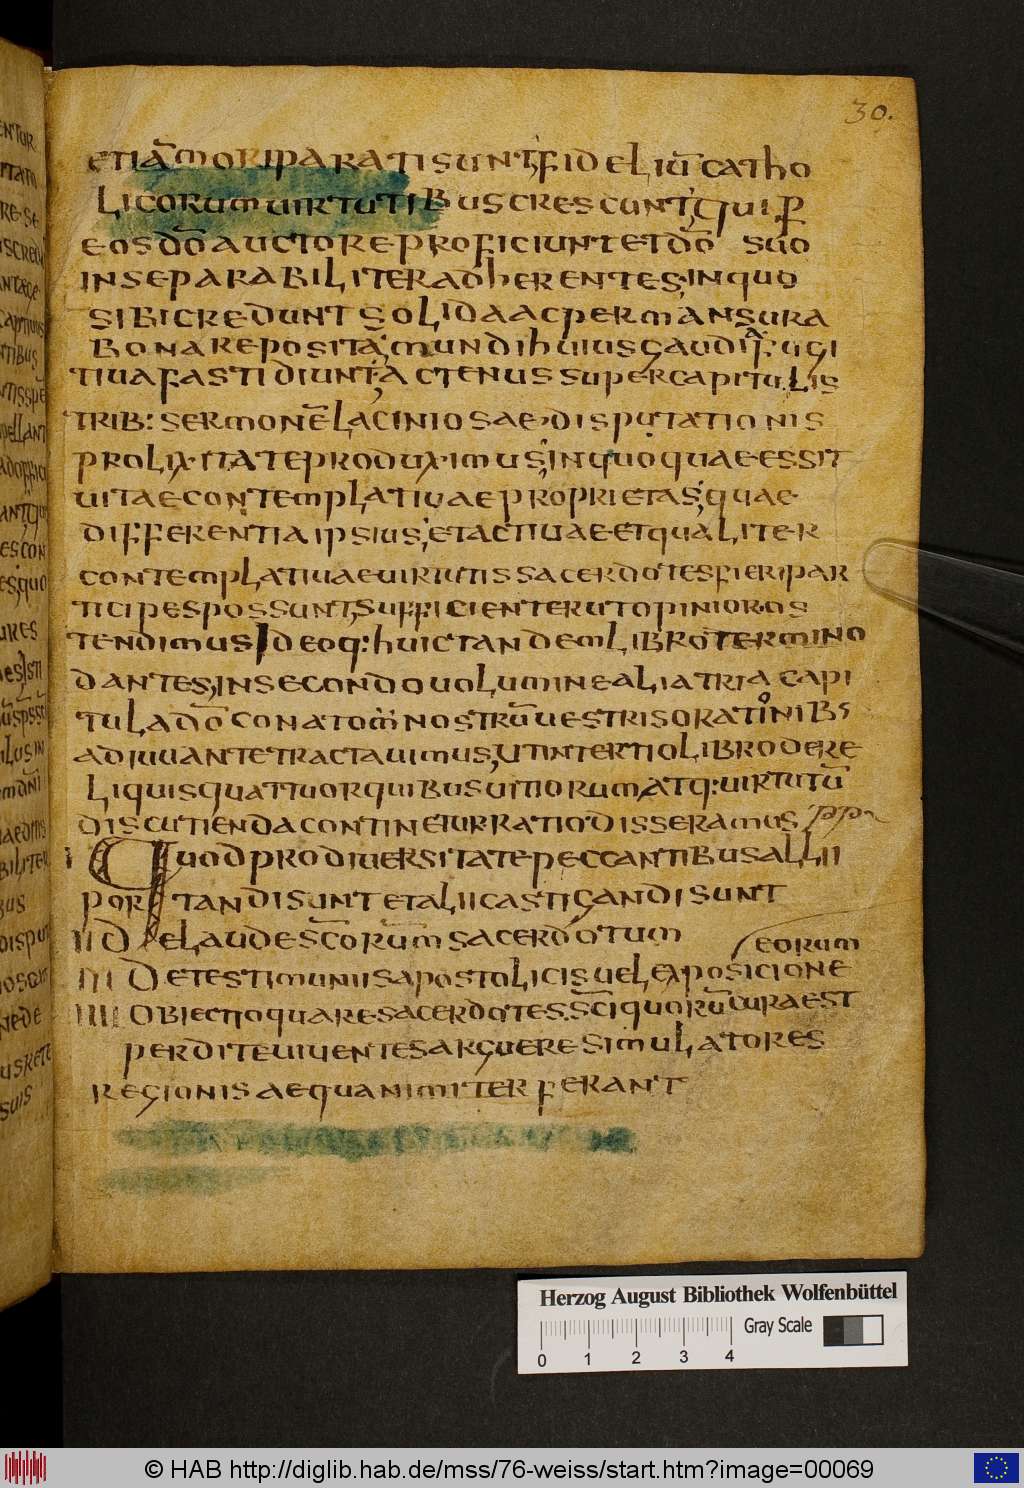 30.
ETIĀ MORI PARATI SUNT, FIDELIŪ CATHO
LICORUM UIRTUTIBUS CRESCUNT, QUI P
EOS DŌO AUCTORE PROFICIUNT ET DŌ SUO
INSEPARABILITER ADHERENTES, IN QUO
SIBI CREDUNT SOLIDA AC PERMANSURA
BONA REPOSITA, MUNDI HUIUS GAUDIA FUGI
TIUA FASTIDIUNT, ACTENUS SUPER CAPITULIS
TRIB: SERMONĒ LACINIOSAE DISPUTATIONIS
PROLIXITATE PRODUXIMUS, IN QUO QUAE ESSIT
UITAE CONTEMPLATIUAE PROPRIETAS, QUAE
DIFFERENTIA IPSIUS, ET ACTIUAE ET QUALITER
CONTEMPLATIUAE UIRTUTIS SACERDOTES FIERI PAR
TICIPES POSSUNT, SUFFICIENTER UT OPINIOR OS
TENDIMUS IDEOQ: HUIC TANDEM LIBRO TERMINO
DANTES, IN SECONDO UOLUMINE ALIA TRIA CAPI
TULA DŌ CONATOM NOSTRŪ UESTRIS ORATIONIBS
ADIUUANTE TRACTAUIMUS, UT IN TERTIO LIBRO DE RE
LIQUIS QUATTUOR QUIBUS UITIORUM ATQ: UIRTUTŪ
DISCUTIENDA CONTINETUR RATIO DISSERAMUS
I QUOD PRO DIUERSITATE PECCANTIBUS ALII
PORTANDI SUNT ET ALII CASTIGANDI SUNT
II DE LAUDE SC̄ORUM SACERDOTUM
EORUM
III DE TESTIMUNIIS APOSTOLICIS UEL EXPOSICIONE
IIII OBIECTIO QUARE SACERDOTES SC̄I QUORŪ CURA EST
PERDITE UIUENTES ARGUERE SIMULATORES
REGIONIS AEQUANIMITER FERANT
Herzog August Bibliothek Wolfenbüttel
Gray Scale
0 1 2 3 4
© HAB http://diglib.hab.de/mss/76-weiss/start.htm?image=00069